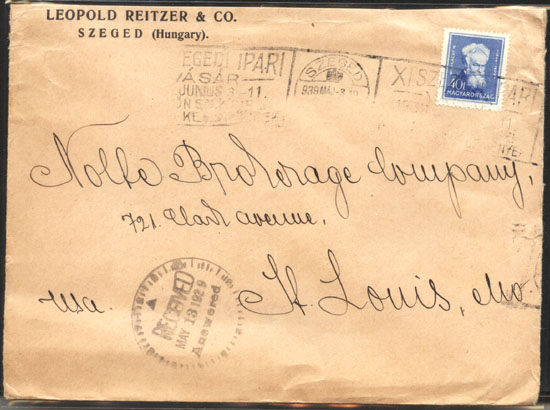 LEOPOLD REITZER & CO.
SZEGED (Hungary).
EGEDI IPARI
VÁSÁR
JUNIUS 3-11.
SZEGED
939 MÁJ-3
XI SZ
40f
MAGYARORSZÁG
Nolte Brokerage Company,
721. Clark avenue,
usa. St Louis, Mo.
RECEIVED
MAY 13 1939
Answered